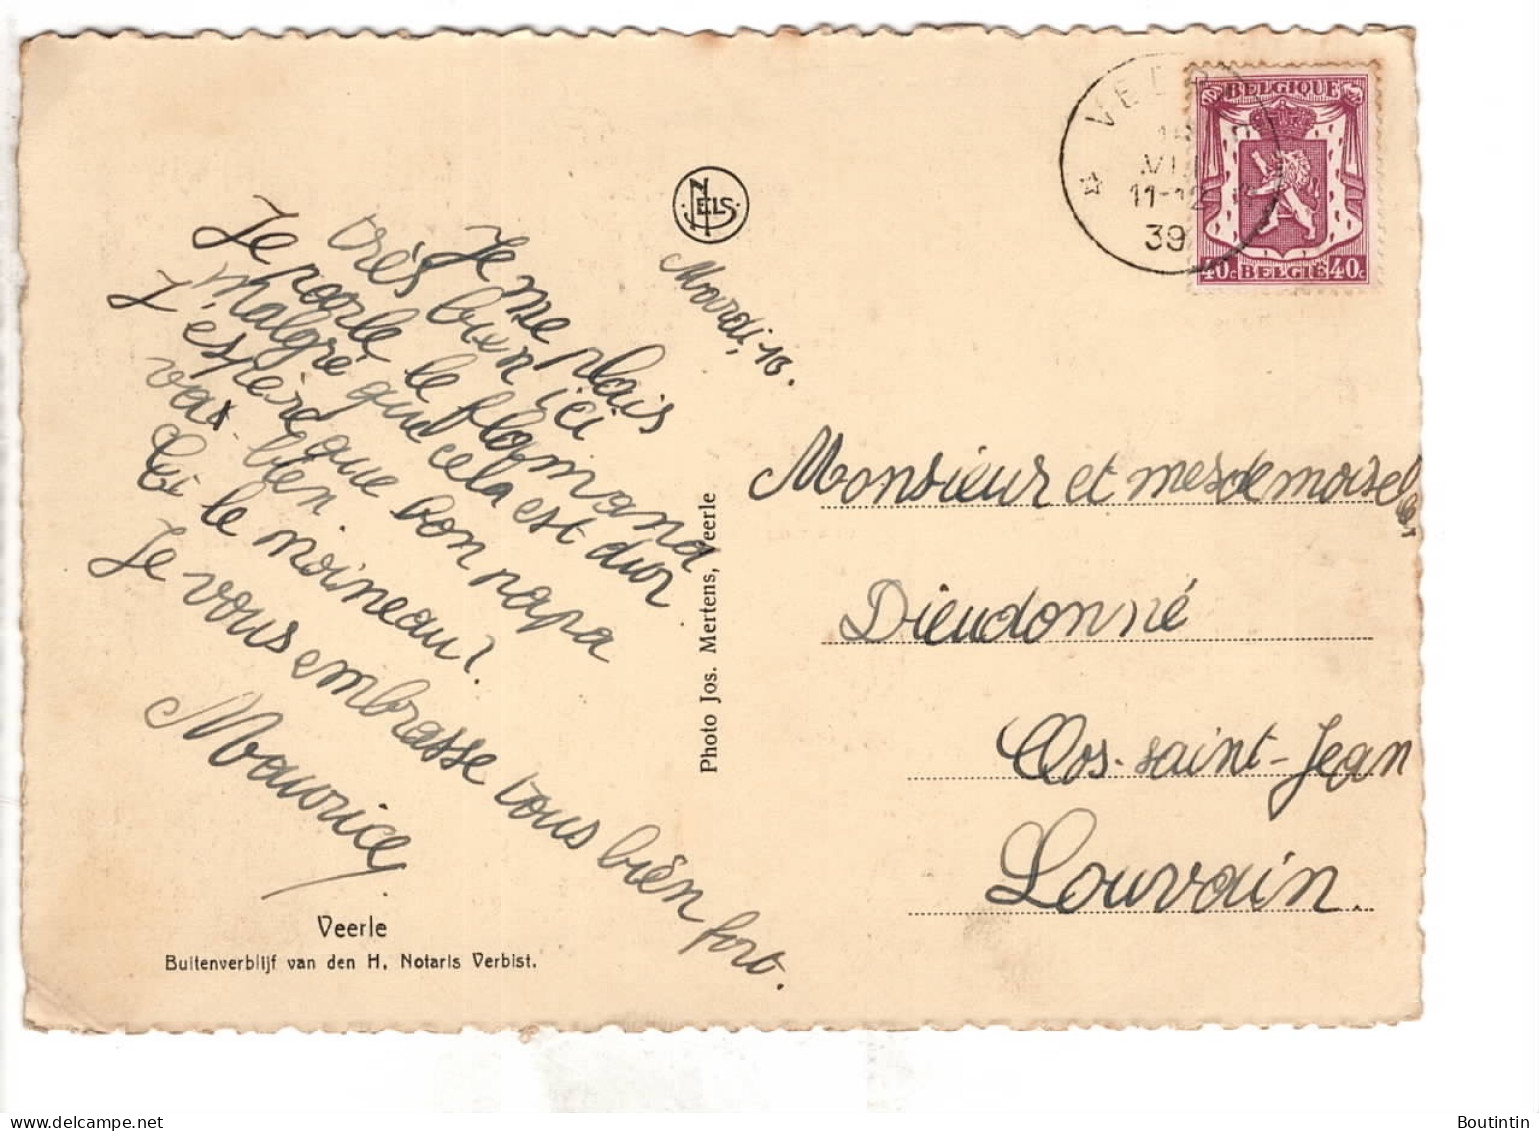 VEER
VII
11-12
39
BELGIQUE
40c BELGIË 40c
NELS
Mardi, 18.
Je me plais
très bien ici
Je parle le flamand
malgré que cela est dur
J'espère que bon papa
vas bien
Et le moineau?
Je vous embrasse tous bien fort.
Maurice
Veerle
Buitenverblijf van den H. Notaris Verbist.
Photo Jos. Mertens, Veerle
Monsieur et mesdemoiselles
Dieudonné
Clos-saint-Jean
Louvain.
Boutintin